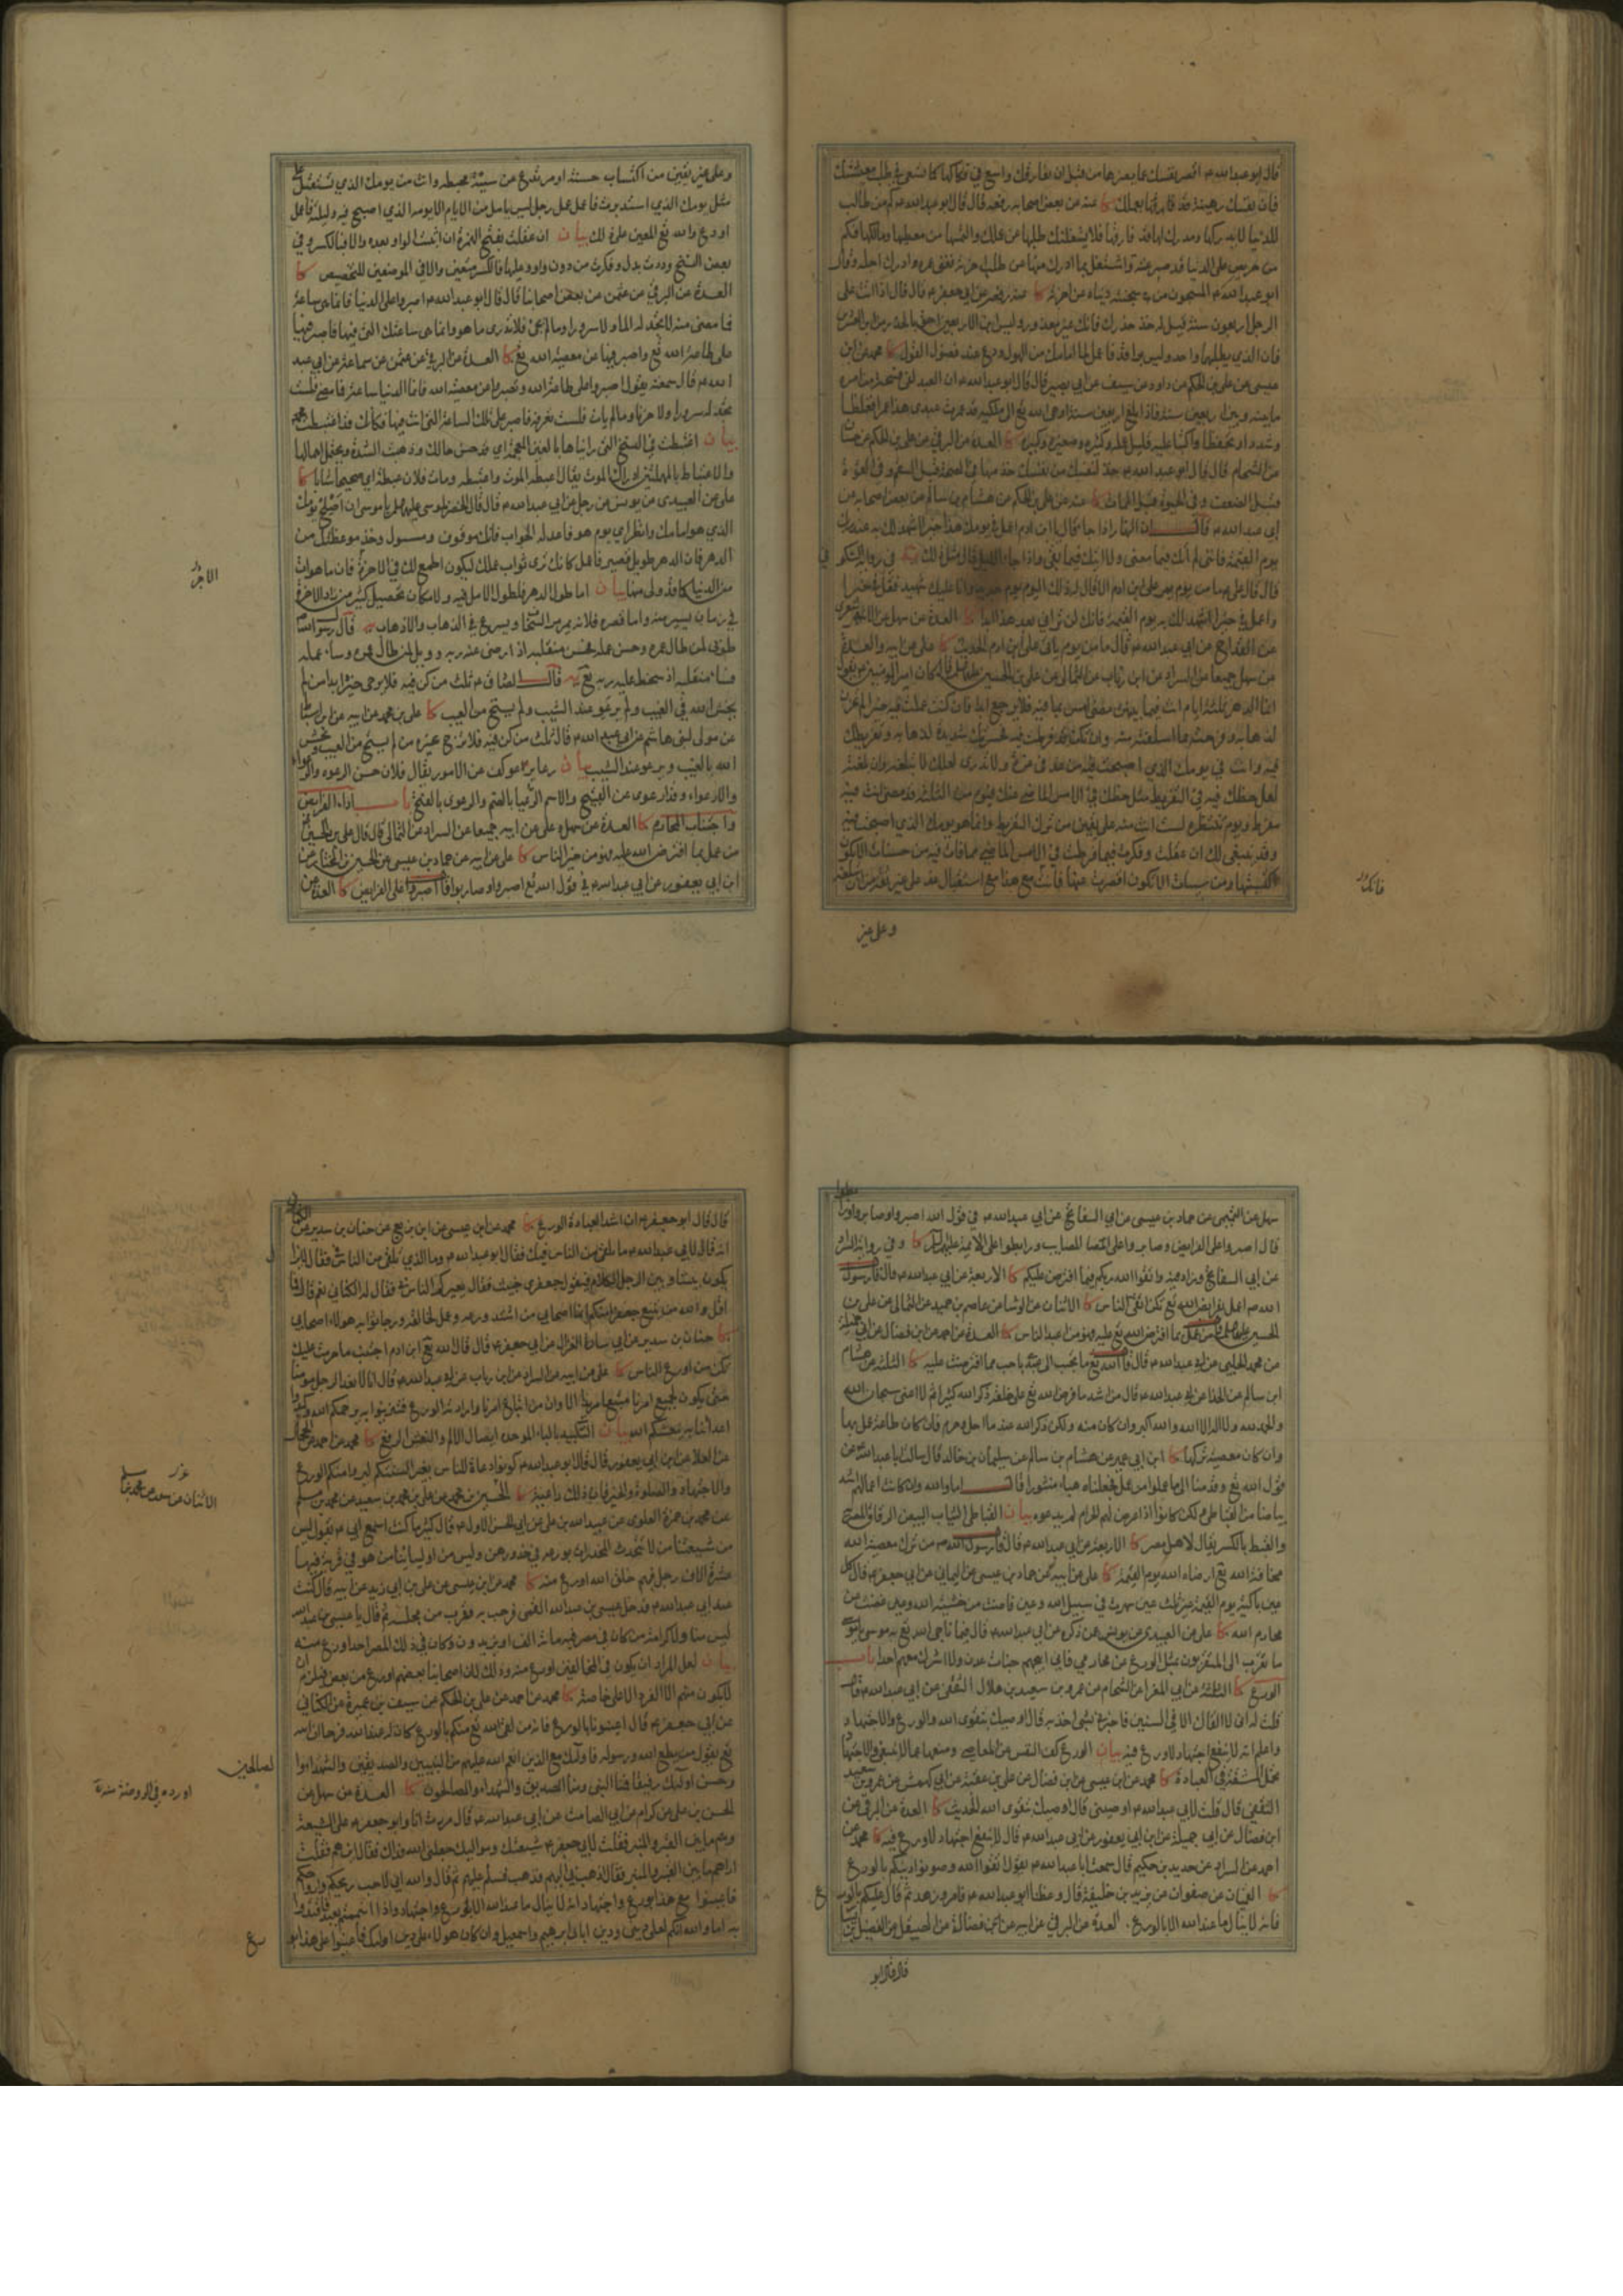 قال ابو عبد الله ع اقصر نفسك عما يضرها من قبل ان تفارقك واسع في فكاكها كما تسعى في طلب معيشتك
فان نفسك رهينة بعملك كا عنه عن بعض اصحابه رفعه قال قال ابو عبد الله ع كم من طالب
للدنيا لم يدركها ومدرك لها قد فارقها فلا يشغلنك طلبها عن عملك والتمسها من معطيها ومالكها فكم
من حريص على الدنيا قد صرعته واشتغل بما ادرك منها عن طلب اخرته حتى فنى عمره وادركه اجله وقال
ابو عبد الله ع المسجون من سجنته دنياه عن اخرته كا عنه رفعه عن ابي جعفر ع قال قال اذا اتت على
الرجل اربعون سنة قيل له خذ حذرك فانك غير معذور وليس ابن الاربعين احق بالحذر من ابن العشرين
فان الذي يطلبهما واحد وليس براقد فاعمل لما امامك من الهول ودع عنك فضول القول كا محمد عن ابن
عيسى عن علي بن الحكم عن داود عن سيف عن ابي بصير قال قال ابو عبد الله ع ان العبد لفي فسحة من امره
ما بينه وبين اربعين سنة فاذا بلغ اربعين سنة اوحى الله تع الى ملكيه قد عمرت عبدي هذا عمرا فغلظا
وشددا وتحفظا واكتبا عليه قليل عمله وكثيره وصغيره وكبيره كا العدة عن البرقي عن علي بن الحكم عن حسان
عن الشحام قال قال ابو عبد الله ع خذ لنفسك من نفسك خذ منها في الصحة قبل السقم وفي القوة
قبل الضعف وفي الحيوة قبل الممات كا عنه عن علي بن الحكم عن هشام بن سالم عن بعض اصحابه عن
ابي عبد الله ع قال ان النهار اذا جاء قال يا ابن ادم اعمل في يومك هذا خيرا اشهد لك به عند ربك
يوم القيمة فاني لم آتك فيما مضى ولا آتيك فيما بقي واذا جاء الليل قال مثل ذلك
قال قال علي ع ما من يوم يمر على ابن ادم الا قال له ذلك اليوم يوم جديد وانا عليك شهيد فقل في خيرا
واعمل في خيرا اشهد لك به يوم القيمة فانك لن تراني بعد هذا ابدا كا العدة عن سهل عن الاشعري
عن القداح عن ابي عبد الله ع قال ما من يوم ياتي على ابن ادم الحديث كا علي عن ابيه والعدة
عن سهل جميعا عن السراد عن ابن رئاب عن الثمالي عن علي بن الحسين قال كان امير المؤمنين ع يقول
انما الدهر ثلثة ايام انت فيما بينهن مضى امس بما فيه فلا يرجع ابدا فان كنت عملت فيه خيرا لم تحزن
لذهابه وفرحت بما استقبلته منه وان تكن قد فرطت فيه فحسرتك شديدة لذهابه وتفريطك
فيه وانت في يومك الذي اصبحت فيه من غد في غرة ولا تدري لعلك لا تبلغه وان بلغته
لعل حظك فيه في التفريط مثل حظك في الامس الماضي عنك فيوم من الثلثة قد مضى انت فيه
مفرط ويوم تنتظره لست انت منه على يقين من ترك التفريط وانما هو يومك الذي اصبحت فيه
وقد ينبغي لك ان عقلت وفكرت فيما فرطت في الامس الماضي مما فاتك فيه من حسنات الا تكون
اكتسبتها ومن سيئات الا تكون اقصرت عنها فانت مع هذا مع استقبال غد على غير ثقة من ان تبلغه
وعلى غير
فانك
وعلى غير يقين من اكتساب حسنة او مرتدع عن سيئة محبطة وانت من يومك الذي تستقبل
مثل يومك الذي استدبرت فاعمل عمل رجل ليس يامل من الايام الا يومه الذي اصبح فيه وليلته فاعمل
او دع والله تع المعين على ذلك بيان ان عقلت بفتح الهمزة ان اثبت الواو بعده والا فبالكسر وفي
بعض النسخ وددت بدل وفكرت من دون واو
العدة عن البرقي عن عثمن عن بعض اصحابنا قال قال ابو عبد الله ع اصبروا على الدنيا فانما هي ساعة
فما مضى منه لا تجد له الما ولا سرورا وما لم يجئ فلا تدري ما هو وانما هي ساعتك التي فيها فاصبر فيها
على طاعة الله تع واصبر فيها عن معصية الله تع كا العدة عن البرقي عن عثمن عن سماعة عن ابي عبد
الله ع قال سمعته يقول اصبروا على طاعة الله وتصبروا عن معصية الله فانما الدنيا ساعة فما مضى فلست
تجد له سرورا ولا حزنا وما لم يات فلست تعرفه فاصبر على تلك الساعة التي انت فيها فكانك قد اغتبطت
بيان اغتبطت في النسخ التي رايناها بالغين المعجمة اي قد حسن حالك وذهبت الشدة ويحتمل اهمالها
والاعتباط بالمهملتين ادراك الموت يقال اعبطه الموت واعتبطه ومات فلان عبطة اي صحيحا شابا كا
علي عن العبيدي عن يونس عن رجل عن ابي عبد الله ع قال قال الخضر لموسى عليهما السلام يا موسى ان اصلح يوميك
الذي هو امامك وانظر اي يوم هو فاعد له الجواب فانك موقوف ومسئول وخذ موعظتك من
الدهر فان الدهر طويل قصير فاعمل كانك ترى ثواب عملك ليكون اطمع لك في الاخرة فان ما هو ات
من الدنيا كما قد ولى منها بيان اما طول الدهر فلطول الامل فيه ولامكان تحصيل كثير من زاد الاخرة
في زمان يسير منه واما قصره فلانه يمر مر السحاب ويسرع في الذهاب والاذهاب يه قال رسول الله
طوبى لمن طال عمره وحسن عمله فحسن منقلبه اذ رضي عنه ربه وويل لمن طال عمره وساء عمله
فساء منقلبه اذ سخط عليه ربه تع يه قال الصادق ع ثلث من كن فيه فلا يرجى خيره ابدا من لم
يخش الله في الغيب ولم يرعو عند الشيب ولم يستح من العيب كا علي بن محمد عن ابيه
عن مولى لبني هاشم عن ابي عبد الله ع قال ثلث من كن فيه فلا ترج خيره من لم يستح من العيب ويخش
الله بالغيب ويرعو عند الشيب بيان رعا يرعو كف عن الامور يقال فلان حسن الرعوة
والارعواء وقد ارعوى عن القبيح والاسم الرعيا بالضم والرعوى بالفتح باب اداء الفرايض
واجتناب المحارم كا العدة عن سهل وعلي عن ابيه جميعا عن السراد عن الثمالي قال قال علي بن الحسين
من عمل بما افترض الله عليه فهو من خير الناس كا علي عن ابيه عن حماد بن عيسى عن الحسين بن المختار عن
ابن ابي يعفور عن ابي عبد الله ع في قول الله تع اصبروا وصابروا قال اصبروا على الفرايض كا العدة عن
الاخرة
سهل عن التميمي عن حماد بن عيسى عن ابي السفاتج عن ابي عبد الله ع في قول الله اصبروا وصابروا ورابطوا
قال اصبروا على الفرايض وصابروا على المصايب ورابطوا على الائمة عليهم السلام كا وفي رواية السراد
عن ابي السفاتج وزاد فيه واتقوا الله ربكم فيما افترض عليكم كا الاربعة عن ابي عبد الله ع قال قال رسول
الله ص اعمل بفرايض الله تع تكن اتقى الناس كا الاثنان عن الوشاء عن عاصم بن حميد عن الثمالي عن علي بن
الحسين من عمل بما افترض الله تع عليه فهو من اعبد الناس كا العدة عن احمد عن ابن فضال عن ابي جميلة
عن محمد الحلبي عن ابي عبد الله ع قال قال الله تع ما تحبب الي عبدي باحب مما افترضت عليه كا الثلثة عن هشام
ابن سالم عن الحذا عن ابي عبد الله ع قال من اشد ما فرض الله تع على خلقه ذكر الله كثيرا ثم لا اعني سبحان الله
والحمد لله ولا اله الا الله والله اكبر وان كان منه ولكن ذكر الله عند ما احل وحرم فان كان طاعة عمل بها
وان كان معصية تركها كا ابن ابي عمير عن هشام بن سالم عن سليمان بن خالد قال سالت ابا عبد الله ع عن
قول الله تع وقدمنا الى ما عملوا من عمل فجعلناه هباء منثورا قال اما والله وان كانت اعمالهم اشد
بياضا من القباطي ولكن كانوا اذا عرض لهم الحرام لم يدعوه بيان القباطي الثياب البيض الرقاق المصرية
والقبط بالكسر يقال لاهل مصر كا الاربعة عن ابي عبد الله ع قال قال رسول الله ص من ترك معصية الله
مخافة الله تع ارضاه الله يوم القيمة كا علي عن ابيه عن حماد بن عيسى عن اليماني عن ابي جعفر ع قال كل
عين باكية يوم القيمة غير ثلث عين سهرت في سبيل الله وعين فاضت من خشية الله وعين غضت عن
محارم الله كا علي عن العبيدي عن يونس عمن ذكره عن ابي عبد الله ع قال فيما ناجى الله تع به موسى يا موسى
ما تقرب الي المتقربون بمثل الورع عن محارمي فاني ابيحهم جنات عدن ولا اشرك معهم احدا باب
الورع كا الثلثة عن ابي المغرا عن الشحام عن عمرو بن سعيد بن هلال الثقفي عن ابي عبد الله ع قال
قلت له اني لا القاك الا في السنين فاخبرني بشيء اخذ به قال اوصيك بتقوى الله والورع والاجتهاد
واعلم انه لا ينفع اجتهاد لا ورع فيه بيان الورع كف النفس عن المعاصي ومنعها عما لا ينبغي والاجتهاد
تحمل المشقة في العبادة كا محمد عن ابن عيسى عن ابن فضال عن علي بن عقبة عن ابي كهمش عن عمرو بن سعيد
الثقفي قال قلت لابي عبد الله ع اوصيني قال اوصيك بتقوى الله الحديث كا العدة عن البرقي عن
ابن فضال عن ابي جميلة عن ابن ابي يعفور عن ابي عبد الله ع قال لا ينفع اجتهاد لا ورع فيه كا محمد عن
احمد عن السراد عن حديد بن حكيم قال سمعت ابا عبد الله ع يقول اتقوا الله وصونوا دينكم بالورع
كا القميان عن صفوان عن يزيد بن خليفة قال وعظنا ابو عبد الله ع فامر وزهد ثم قال عليكم بالورع
فانه لا ينال ما عند الله الا بالورع . العدة عن البرقي عن ابيه عن ابن فضالة عن الصيقل عن الفضيل بن يسار
قال قال ابو
قال قال ابو جعفر ع ان اشد العبادة الورع كا محمد عن ابن عيسى عن ابن بزيع عن حنان بن سدير عن
انه قال لابي عبد الله ع ما نلقى من الناس فيك فقال ابو عبد الله ع وما الذي تلقى من الناس في فقال لا يزال
يكون بيننا وبين الرجل الكلام فيقول جعفري خبيث فقال يعيركم الناس بي فقال له الكناني نعم قال ما
اقل والله من يتبع جعفرا منكم انما اصحابي من اشتد ورعه وعمل لخالقه ورجا ثوابه هؤلاء اصحابي
كا حنان بن سدير عن ابي سارة الغزال عن ابي جعفر ع قال قال الله تع ابن ادم اجتنب ما حرمت عليك
تكن من اورع الناس كا علي عن ابيه عن السراد عن ابن رئاب عن ابي عبد الله ع قال انا لا نعد الرجل مؤمنا
حتى يكون لجميع امرنا متبعا مريدا الا وان من اتباع امرنا وارادته الورع فتزينوا به يرحمكم الله وكيدوا
اعدائنا به ينعشكم الله بيان التكبيد بالباء الموحدة ايصال الالم والنعش الرفع كا محمد عن احمد عن الحجال
عن العلا عن ابن ابي يعفور قال قال ابو عبد الله ع كونوا دعاة للناس بغير السنتكم ليروا منكم الورع
والاجتهاد والصلوة والخير فان ذلك داعية كا الحسين بن محمد عن علي بن محمد بن سعيد عن محمد بن مسلم
عن محمد بن حمزة العلوي عن عبيد الله بن علي عن ابي الحسن الاول ع قال كثيرا ما كنت اسمع ابي ع يقول ليس
من شيعتنا من لا تتحدث المخدرات بورعه في خدورهن وليس من اوليائنا من هو في قرية فيها
عشرة الاف رجل فيهم خلق الله اورع منه كا محمد عن ابن عيسى عن علي بن ابي زيد عن ابيه قال كنت
عند ابي عبد الله ع فدخل عيسى بن عبد الله القمي فرحب به فقرب من مجلسه ثم قال يا عيسى بن عبد الله
ليس منا ولا كرامة من كان في مصر فيه مائة الف او يزيدون وكان في ذلك المصر احد اورع منه
بيان لعل المراد ان يكون في المخالفين اورع منه وذلك لان اصحابنا بعضهم اورع من بعض فيلزم ان
لا يكون منهم الا الفرد الاعلى خاصة كا محمد عن احمد عن علي بن الحكم عن سيف بن عميرة عن الكناني
عن ابي جعفر ع قال اعينونا بالورع فانه من لقى الله تع منكم بالورع كان له عند الله فرجا ان الله
تع يقول من يطع الله ورسوله فاولئك مع الذين انعم الله عليهم من النبيين والصديقين والشهداء
وحسن اولئك رفيقا فمنا النبي ومنا الصديق والشهداء والصالحون كا العدة عن سهل عن
الحسن بن علي عن كرام عن ابي الصامت عن ابي عبد الله ع قال مررت انا وابو جعفر ع على الشيعة
وهم ما بين القبر والمنبر فقلت لابي جعفر ع شيعتك ومواليك جعلني الله فداك فقال اين هم فقلت
اراهم ما بين القبر والمنبر فقال اذهب بي اليهم فذهب فسلم عليهم ثم قال والله اني لاحب ريحكم وارواحكم
فاعينوا مع هذا بورع واجتهاد انه لا ينال ما عند الله الا بورع واجتهاد واذا ائتممتم بعبد فاقتدوا
به اما والله انكم لعلى ديني ودين ابائي ابرهيم واسمعيل وان كان هؤلاء على دين اولئك فاعينوا على هذا بو
الاثنان عن سعد عن محمد بن مسلم
والصالحين
اورده في الروضة
رع